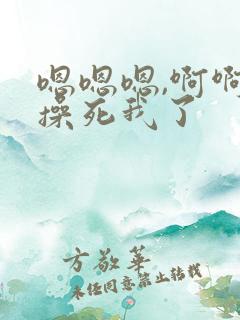 嗯嗯嗯,啊啊
操死我了
方敬华
未经同意禁止转载